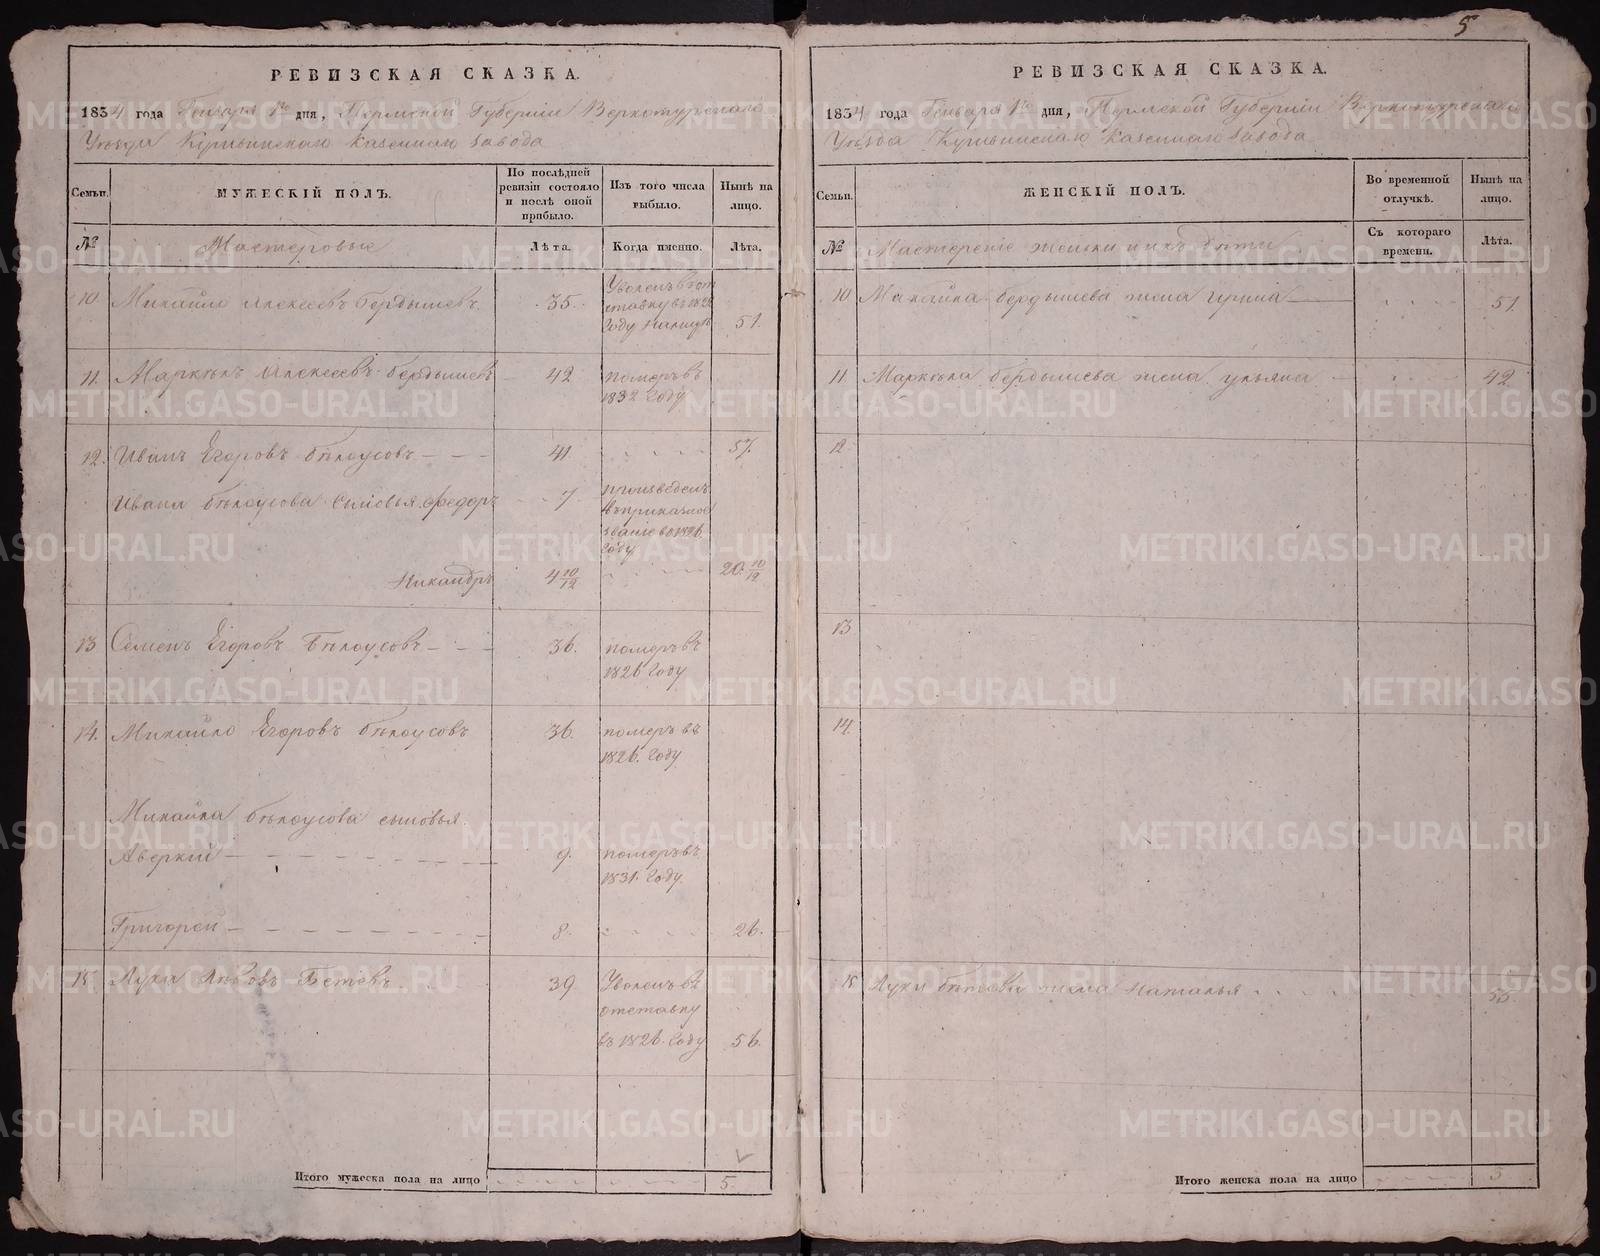 РЕВИЗСКАЯ СКАЗКА.
1834 года Генваря 1го дня, Пермской Губерніи Верхотурскаго
Уѣзда Кушвинскаго казеннаго завода
Семьи.
МУЖЕСКІЙ ПОЛЪ.
По послѣдней ревизіи состояло и послѣ оной прибыло.
Изъ того числа выбыло.
Нынѣ на лицо.
№
Мастеровые
Лѣта.
Когда именно.
Лѣта.
10 Михайло Алексеевъ Бердышевъ 35. Уволенъ въ от
ставку въ 1826
Году 51.
11. Алексеевъ Бердышевъ 42 померъ въ
1832 Году
12. Иванъ Егоровъ Бѣлоусовъ 41 57.
Ивана Бѣлоусова сыновья Федоръ 7 произведенъ
въ приказное
званіе в 1826.
Году
Никандръ 4 10/12 20. 10/12
13 Семенъ Егоровъ Бѣлоусовъ 36. померъ въ
1826 Году
14. Михайло Егоровъ Бѣлоусовъ 36. померъ въ
1826. Году
Михайла Бѣлоусова сыновья.
Аверкій 9. померъ въ
1831. Году.
Григорей 8. 26.
15 Лука 39 Уволенъ въ
отставку
въ 1826. Году 56.
Итого мужеска пола на лицо 5.
5
РЕВИЗСКАЯ СКАЗКА.
1834 года Генваря 1го дня, Пермской Губерніи Верхотурскаго
Уѣзда Кушвинскаго казеннаго завода
Семьи.
ЖЕНСКІЙ ПОЛЪ.
Во временной отлучкѣ.
Нынѣ на лицо.
№
женки и ихъ дѣти
Съ котораго времени.
Лѣта.
10 Михайла Бердышева жена Ирина 51.
11 Бердышева жена Ульяна 42
12
13
14.
15 Луки жена Наталья 55
Итого женска пола на лицо 3
METRIKI.GASO-URAL.RU